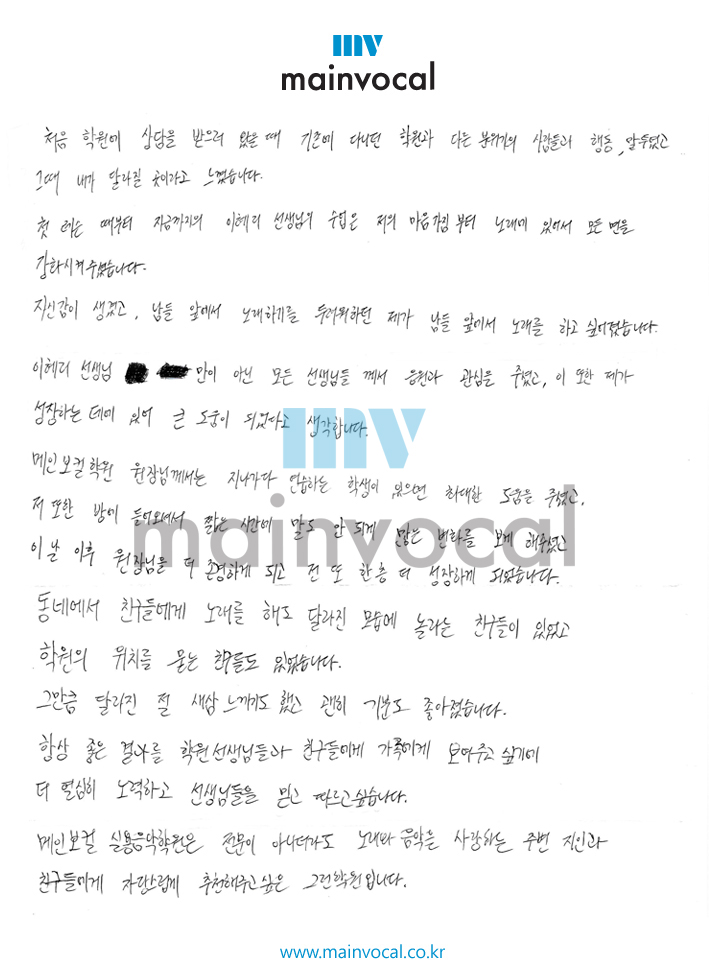 mv
mainvocal
처음 학원에 상담을 받으러 왔을 때 기존에 다니던 학원과 다른 분위기의 사람들의 행동, 말투였고
그때 내가 달라질 것이라고 느꼈습니다.
첫 레슨 때부터 지금까지의 이혜리 선생님의 수업은 저의 마음가짐부터 노래에 있어서 모든 면을
강화시켜주셨습니다.
자신감이 생겼고, 남들 앞에서 노래하기를 두려워하던 제가 남들 앞에서 노래를 하고 싶어졌습니다.
이혜리 선생님 만이 아닌 모든 선생님들 께서 응원과 관심을 주셨고, 이 또한 제가
성장하는데에 있어 큰 도움이 되었다고 생각합니다.
메인보컬학원 원장님께서는 지나가다 연습하는 학생이 있으면 최대한 도움을 주셨고,
저 또한 방에 들어오셔서 짧은 시간에 말도 안 되게 많은 변화를 보게 해주셨고
이 날 이후 원장님을 더 존경하게 되고 전 또 한층 더 성장하게 되었습니다.
동네에서 친구들에게 노래를 해도 달라진 모습에 놀라는 친구들이 있었고
학원의 위치를 묻는 친구들도 있었습니다.
그만큼 달라진 절 새삼 느끼기도 했고 괜히 기분도 좋아졌습니다.
항상 좋은 결과를 학원선생님들과 친구들에게 가족에게 보여주고 싶기에
더 열심히 노력하고 선생님들을 믿고 따르고싶습니다.
메인보컬 실용음악학원은 전문이 아니더라도 노래와 음악을 사랑하는 주변 지인과
친구들에게 자랑스럽게 추천해주고싶은 그런학원입니다.
mv
mainvocal
www.mainvocal.co.kr